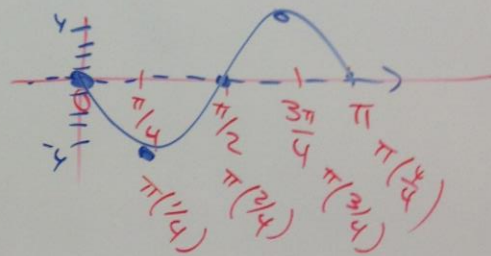 4
0
-4
π/4 π/2 3π/4 π
π(1/4) π(2/4) π(3/4) π(4/4)